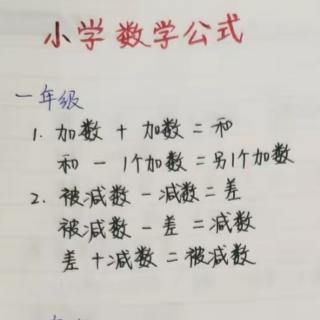 小学数学公式
一年级
1. 加数 + 加数 = 和
和 - 1个加数 = 另1个加数
2. 被减数 - 减数 = 差
被减数 - 差 = 减数
差 + 减数 = 被减数